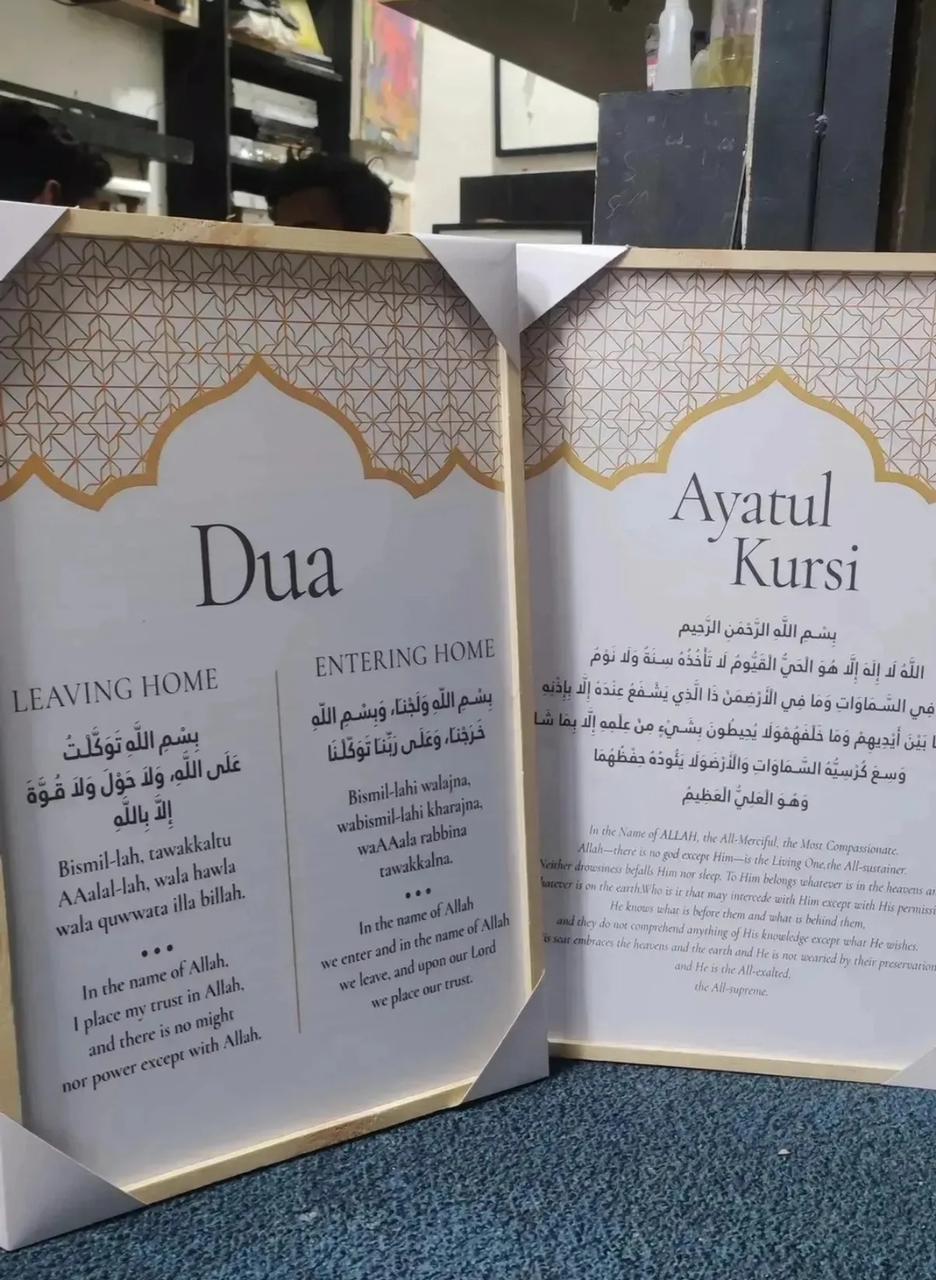 Dua
LEAVING HOME
بِسْمِ اللَّهِ تَوَكَّلْتُ
عَلَى اللَّهِ، وَلاَ حَوْلَ وَلاَ قُوَّةَ
إِلاَّ بِاللَّهِ
Bismil-lah, tawakkaltu
AAalal-lah, wala hawla
wala quwwata illa billah.
•••
In the name of Allah,
I place my trust in Allah,
and there is no might
nor power except with Allah.
ENTERING HOME
بِسْمِ اللَّهِ وَلَجْنَا، وَبِسْمِ اللَّهِ
خَرَجْنَا، وَعَلَى رَبِّنَا تَوَكَّلْنَا
Bismil-lahi walajna,
wabismil-lahi kharajna,
waAAala rabbina
tawakkalna.
•••
In the name of Allah
we enter and in the name of Allah
we leave, and upon our Lord
we place our trust.
Ayatul
Kursi
بِسْمِ اللَّهِ الرَّحْمَنِ الرَّحِيم
اللَّهُ لَا إِلَهَ إِلَّا هُوَ الْحَيُّ الْقَيُّومُ لَا تَأْخُذُهُ سِنَةٌ وَلَا نَوْمٌ
فِي السَّمَاوَاتِ وَمَا فِي الْأَرْضِمَنْ ذَا الَّذِي يَشْفَعُ عِنْدَهُ إِلَّا بِإِذْنِهِ
بَيْنَ أَيْدِيهِمْ وَمَا خَلْفَهُمْوَلَا يُحِيطُونَ بِشَيْءٍ مِنْ عِلْمِهِ إِلَّا بِمَا
وَسِعَ كُرْسِيُّهُ السَّمَاوَاتِ وَالْأَرْضَوَلَا يَئُودُهُ حِفْظُهُمَا
وَهُوَ الْعَلِيُّ الْعَظِيمُ
In the Name of ALLAH, the All-Merciful, the Most Compassionate.
Allah—there is no god except Him—is the Living One,the All-sustainer.
Neither drowsiness befalls Him nor sleep. To Him belongs whatever is in the heavens
is on the earth.Who is it that may intercede with Him except with His
He knows what is before them and what is behind them,
and they do not comprehend anything of His knowledge except what He wishes.
seat embraces the heavens and the earth and He is not wearied by their preservation
and He is the All-exalted,
the All-supreme.